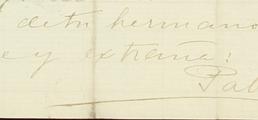 de tu hermano
e y extraña!
Pab